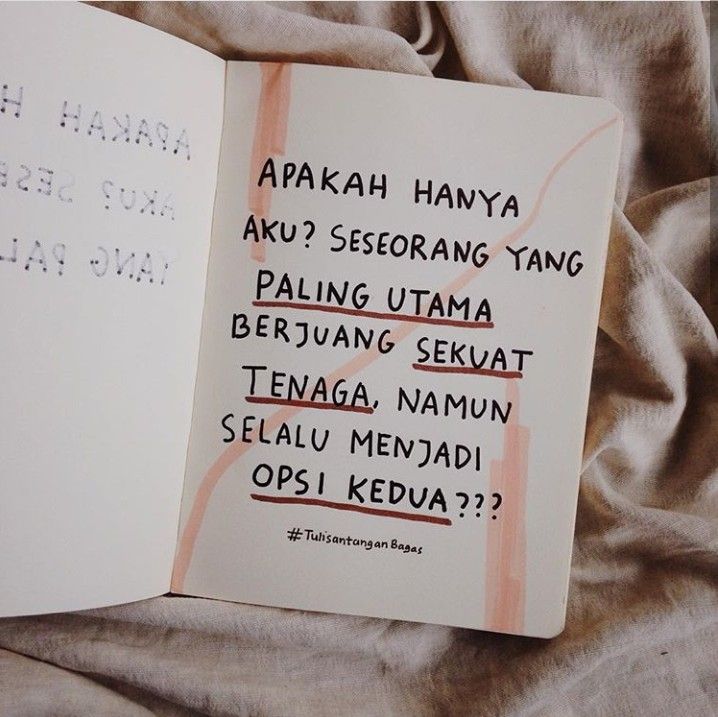 APAKAH HANYA
AKU? SESEORANG YANG
PALING UTAMA
BERJUANG SEKUAT
TENAGA, NAMUN
SELALU MENJADI
OPSI KEDUA???
#TulisantanganBagas
APAKAH H
AKU? SESE
YANG PAL